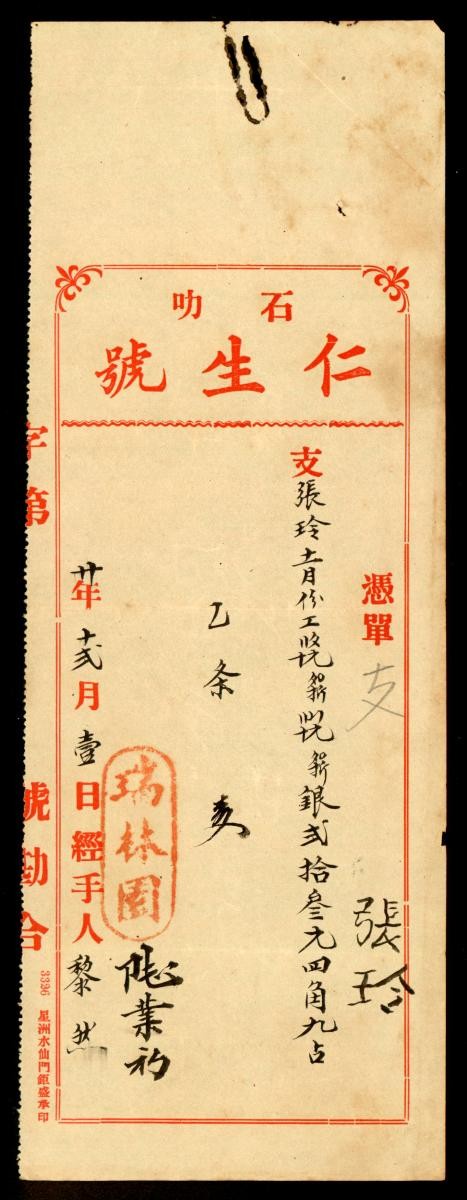 石叻
仁生號
憑單
支
張玲
支張玲十一月份工
銀弍拾叁元四角九占
乙条
瑞林園
業
廿年十弍月壹日經手人黎
字第
號勘合
3396 星洲水仙門鉅盛承印